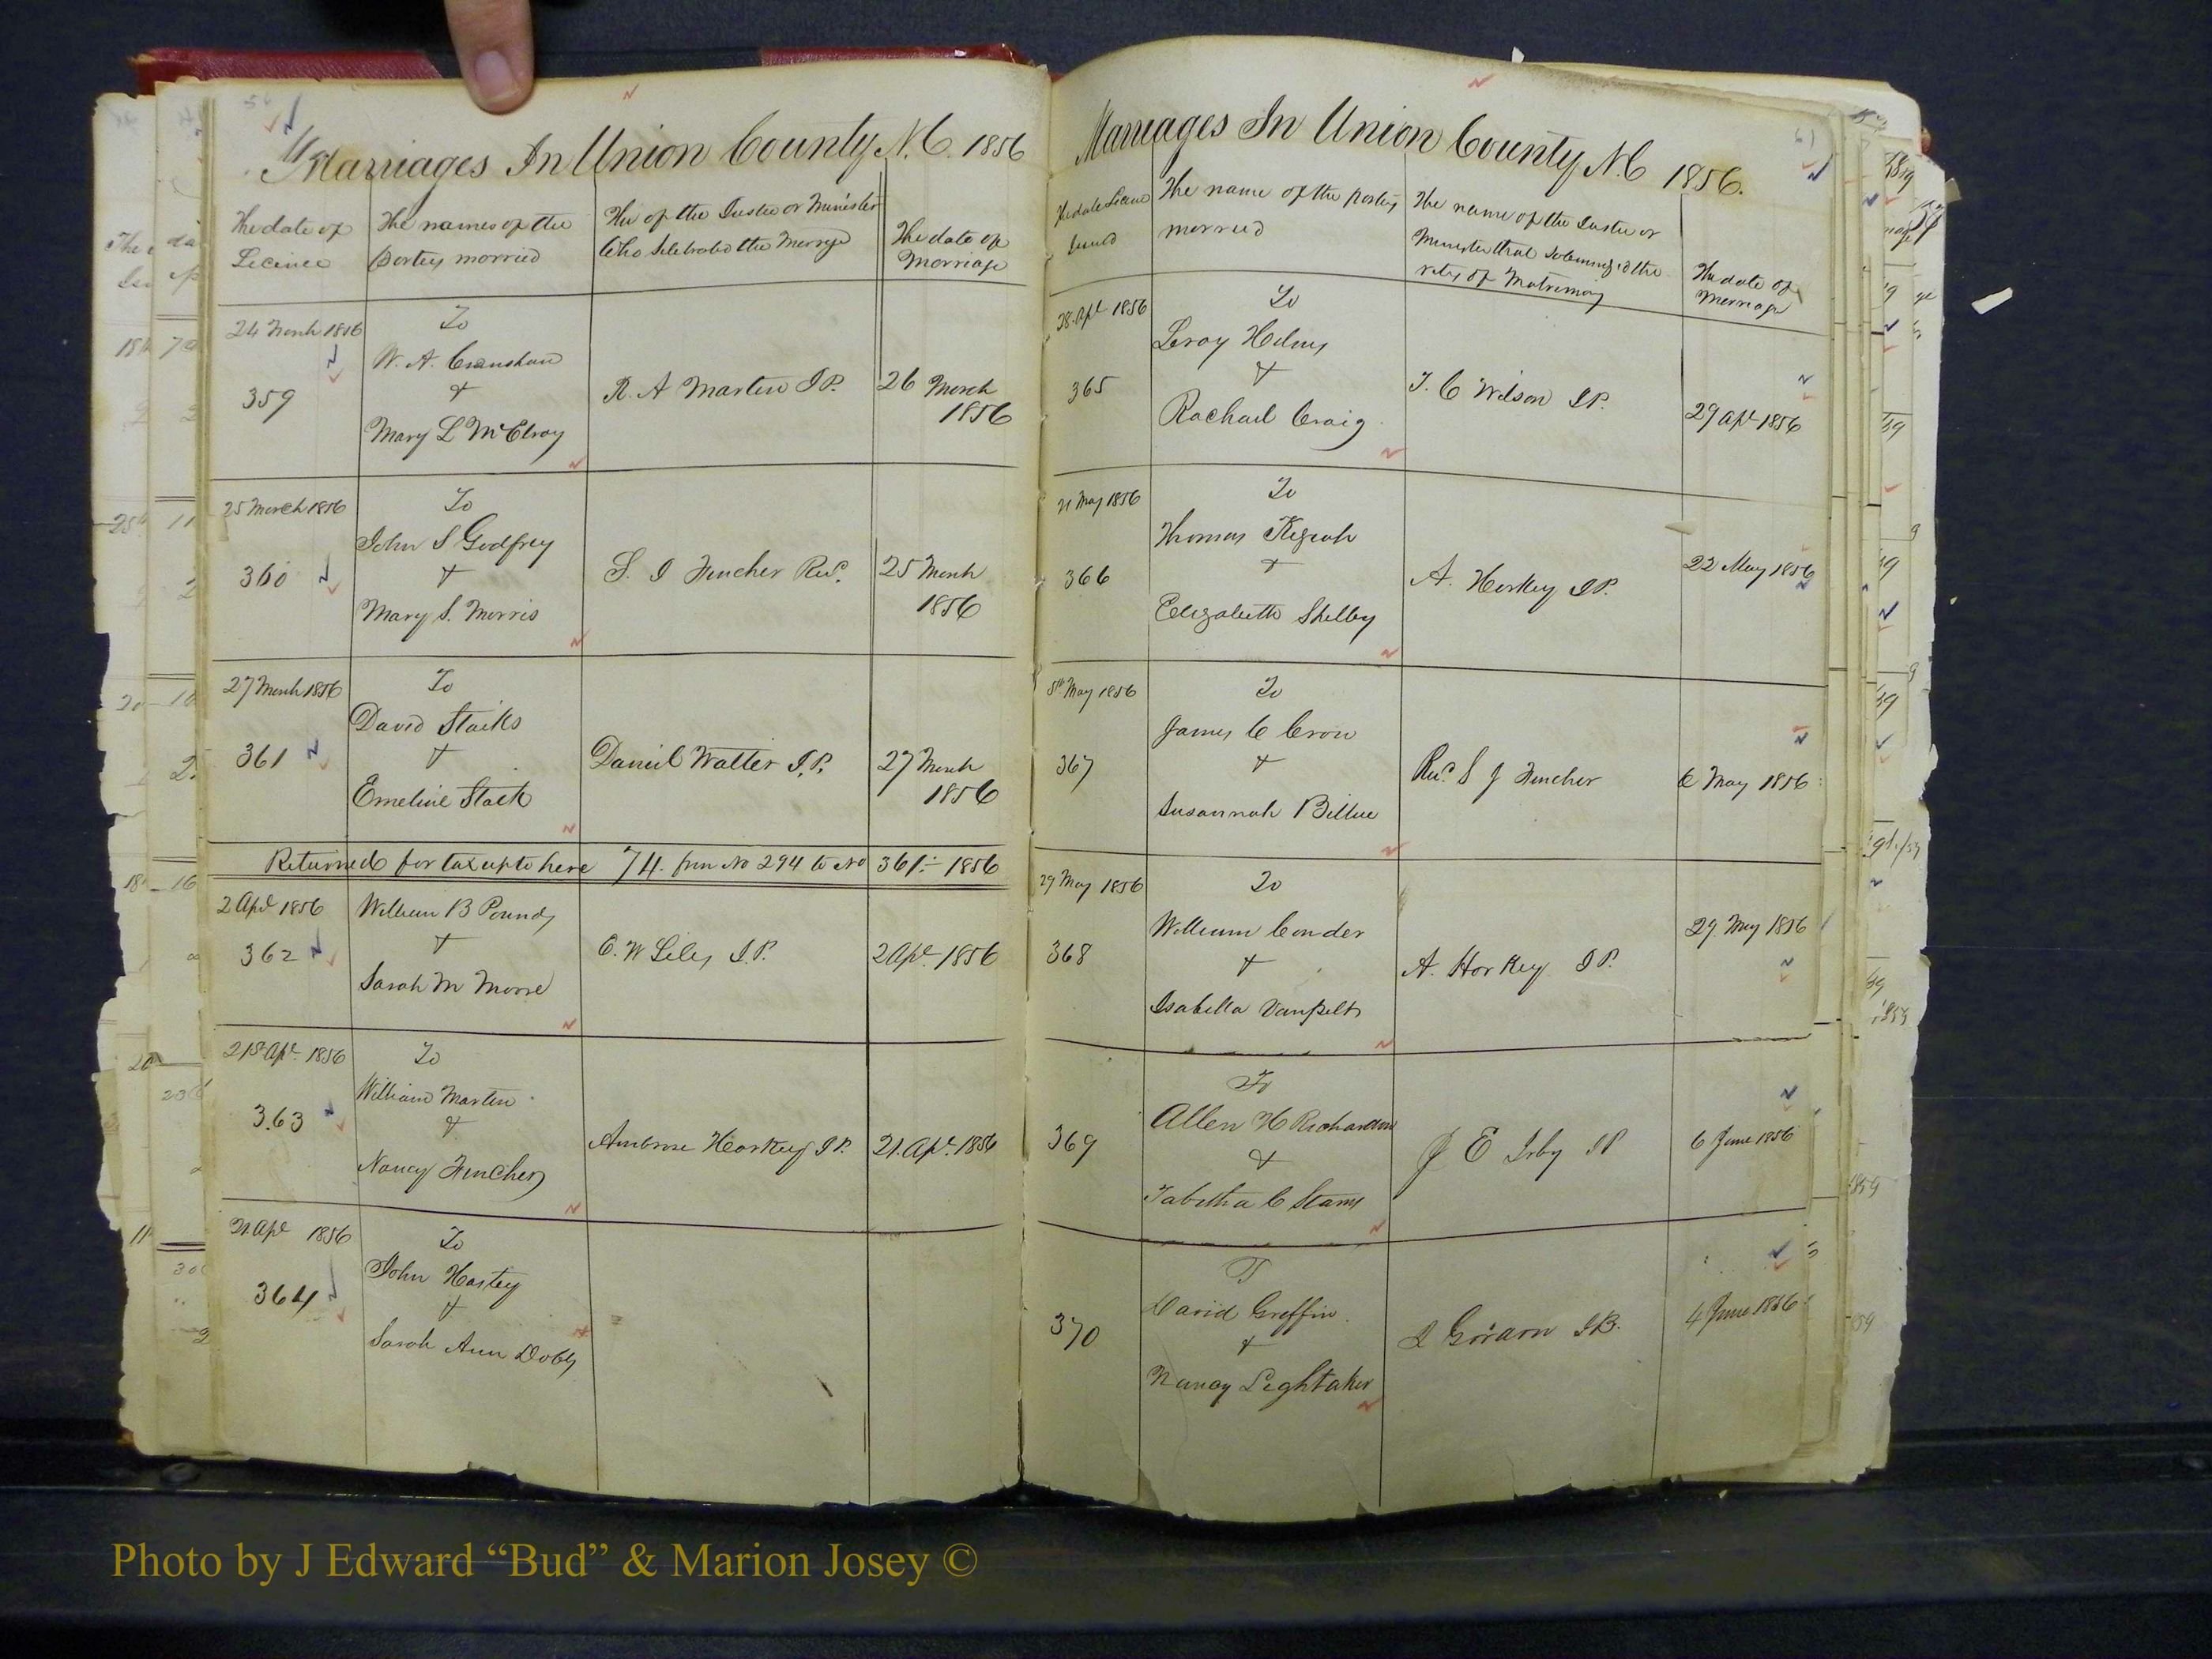 Marriages In Union County N.C. 1856
The date of Licince
The names of the parteys morried
The of the Justice or Minister Who Selebrated the Merrage
The date of Morriage
24 March 1856
359
To
W. A. Crenshaw
&
Mary L McElroy
R. A Martin J.P.
26 March 1856
25 March 1856
360
To
John S Godfrey
&
Mary S. Morris
S. J Fincher Revd.
25 March 1856
27 March 1856
361
To
David Starks
&
Emeline Stack
Daniel Walter J.P.
27 March 1856
Returned for tax up to here 74. frm No 294 to No 361.- 1856
2 Apl 1856
362
William B Pounds
&
Sarah M Moore
E. W Liles J.P.
2 Apl. 1856
21st Apl. 1856
363
To
William Martin
&
Nancy Fincher
Ambrose Harkey J.P.
21. Apl. 1856
21 Apl 1856
364
To
John Hastey
&
Sarah Ann Doby
Marriages In Union County N.C 1856.
The date Licince Isued
The name of the parteys morried
The name of the Justice or Minister that Solemnized the rites of Matrimony
The date of Merriage
28 Apl 1856
365
To
Leroy Helms
&
Rachael Craig
T. C Wilson J.P.
29 Apl 1856
21 May 1856
366
To
Thomas Keziah
&
Elizabeth Shelby
A. Harkey J.P.
22 May 1856
5th May 1856
367
To
James C Crow
&
Susannah Billue
Revd. S J Fincher
6 May 1856
29 May 1856
368
To
William Conder
&
Isabella Vanpelt
A. Harkey J.P.
29. May 1856
369
To
Allen H Richardson
&
Tabitha C Starns
J E Irby J P
6 June 1856
370
T
David Griffin
&
Nancy Lightaker
Gordon J.P.
4 June 1856
Photo by J Edward “Bud” & Marion Josey ©